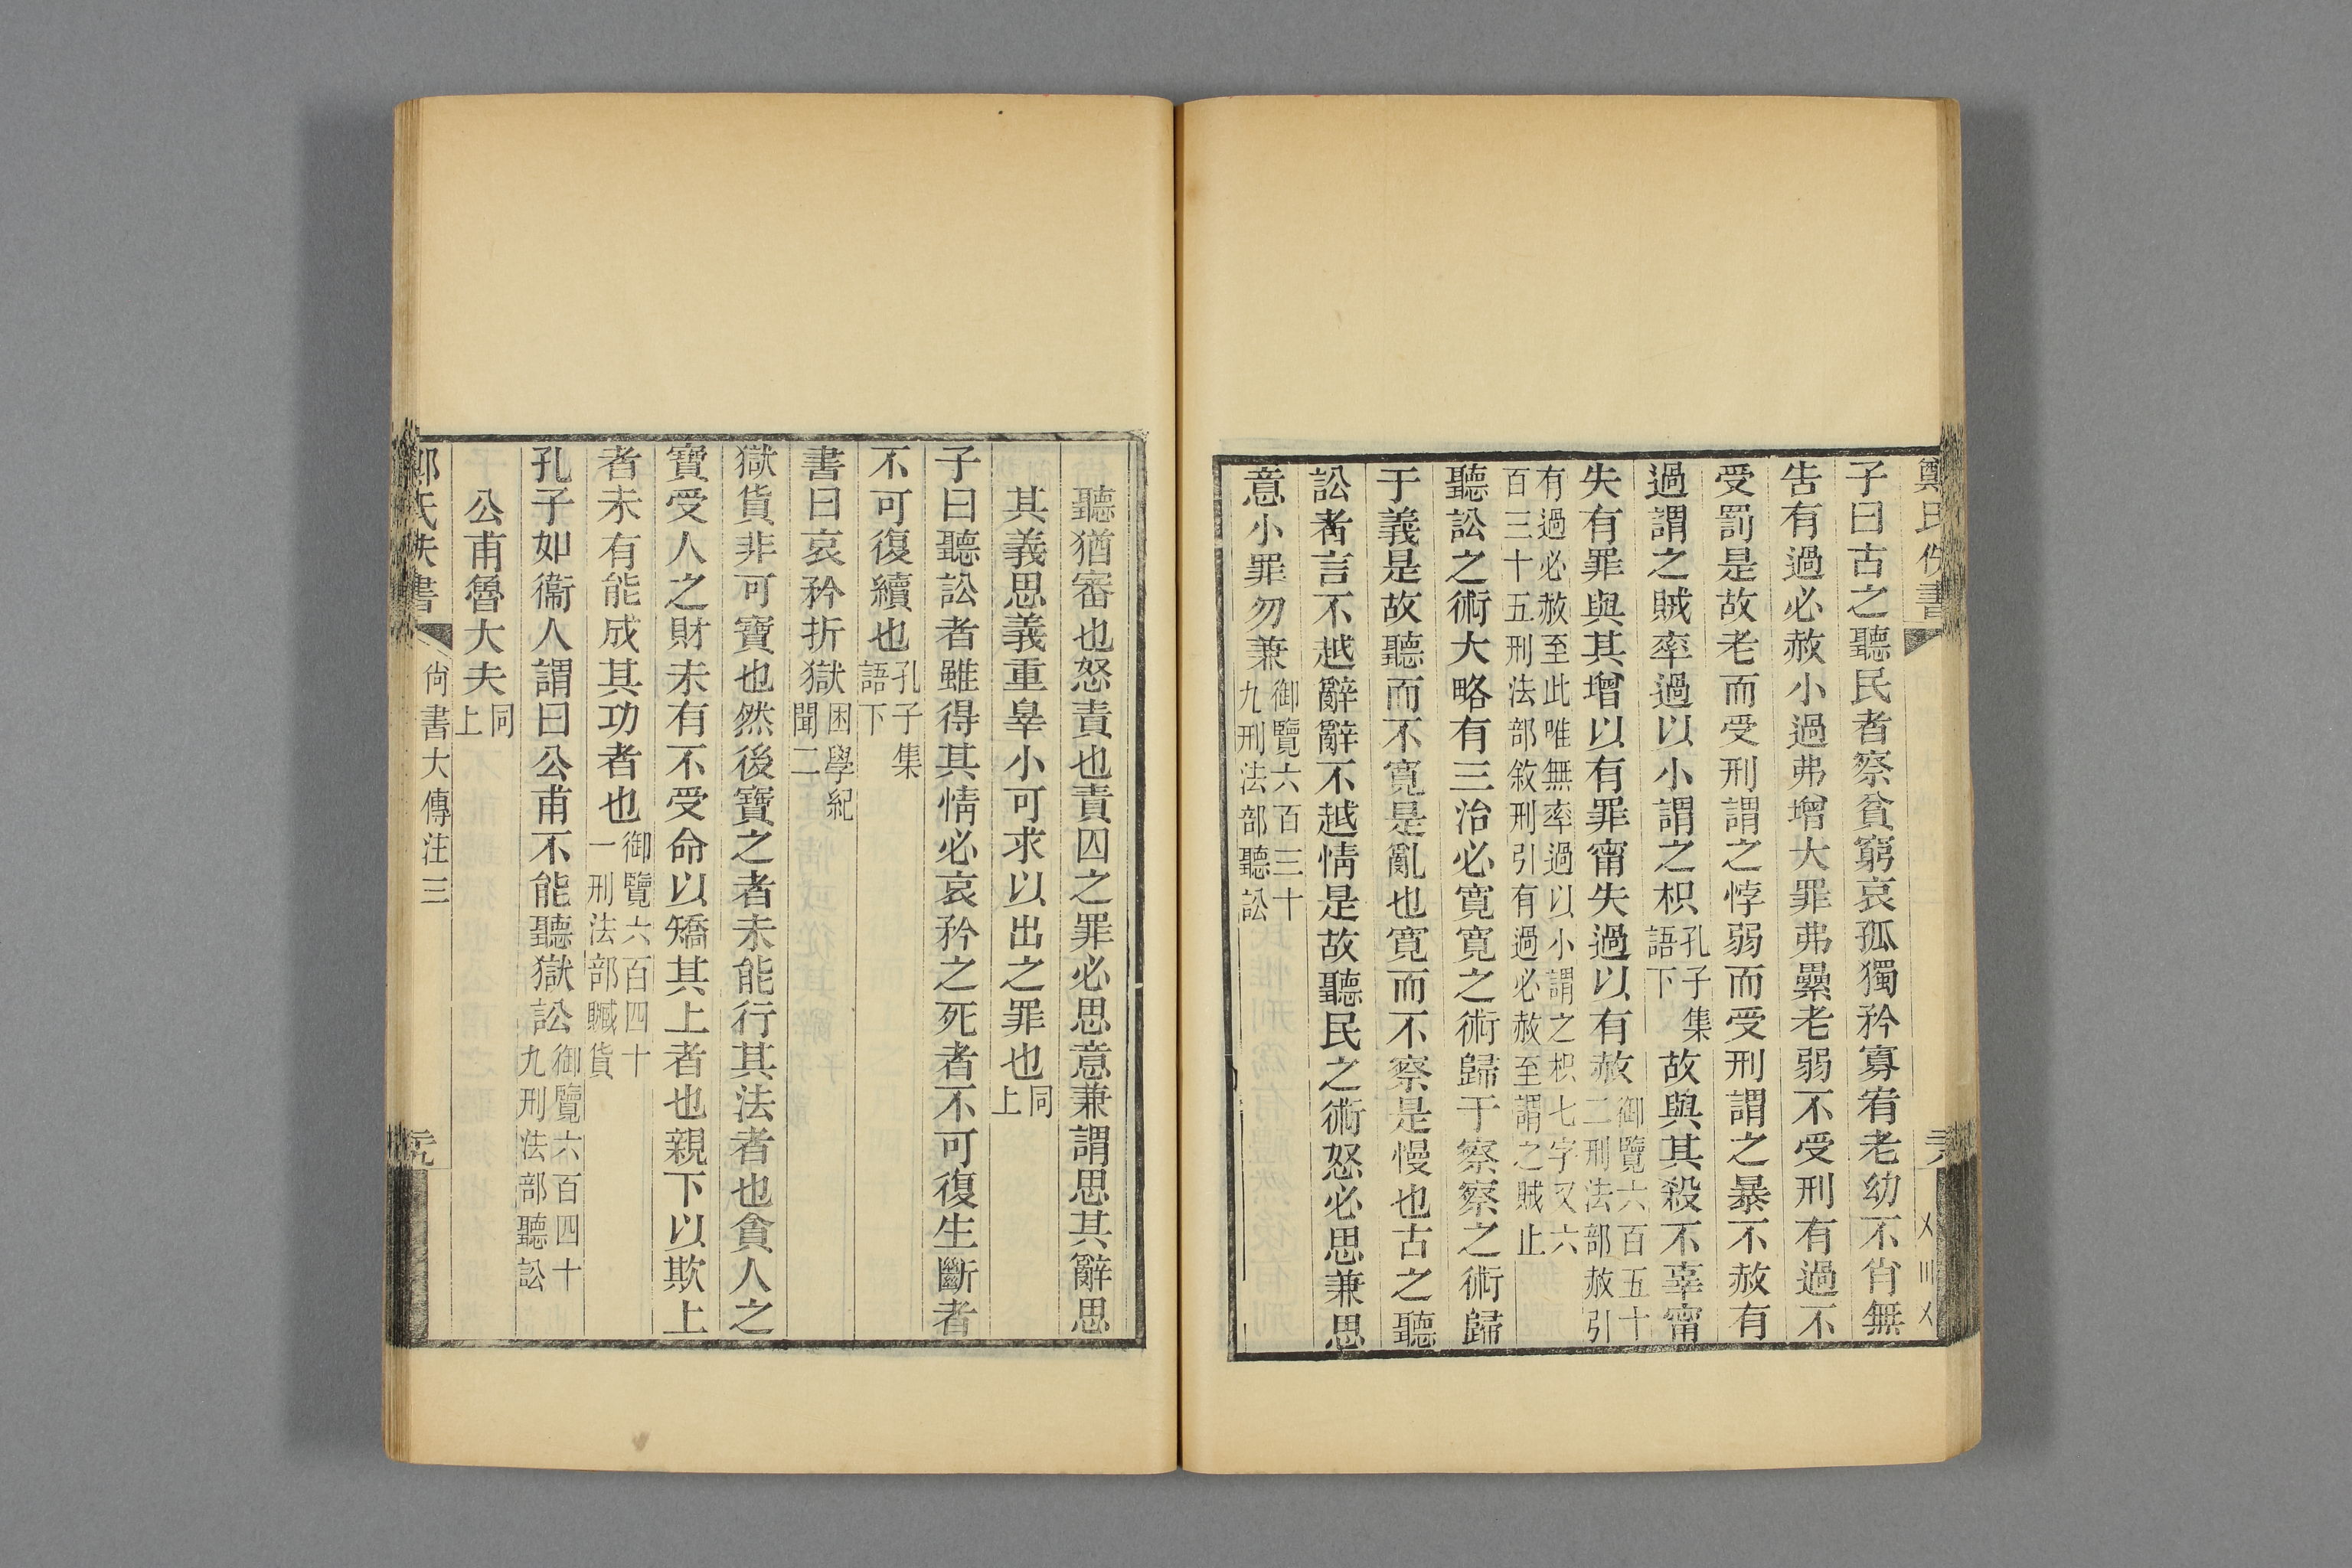 鄭氏佚書
子曰古之聽民者察貧窮哀孤獨矜寡宥老幼不肖無
告有過必赦小過弗增大罪弗纍老弱不受刑有過不
受罰是故老而受刑謂之悖弱而受刑謂之暴不赦有
過謂之賊率過以小謂之枳孔子集語下故與其殺不辜甯
失有罪與其增以有罪甯失過以有赦御覽六百五十二刑法部赦引
有過必赦至此唯無率過以小謂之枳七字又六
百三十五刑法部敘刑引有過必赦至謂之賊止
聽訟之術大略有三治必寬寬之術歸于察察之術歸
于義是故聽而不寬是亂也寬而不察是慢也古之聽
訟者言不越辭辭不越情是故聽民之術怒必思兼思
意小罪勿兼御覽六百三十九刑法部聽訟
聽猶審也怒責也責囚之罪必思意兼謂思其辭思
其義思義重辠小可求以出之罪也同上
子曰聽訟者雖得其情必哀矜之死者不可復生斷者
不可復續也孔子集語下
書曰哀矜折獄困學紀聞二
獄貨非可寶也然後寶之者未能行其法者也貪人之
寶受人之財未有不受命以矯其上者也親下以欺上
者未有能成其功者也御覽六百四十一刑法部贓貨
孔子如衞人謂曰公甫不能聽獄訟御覽六百四十九刑法部聽訟
公甫魯大夫同上
氏佚書
尙書大傳注三